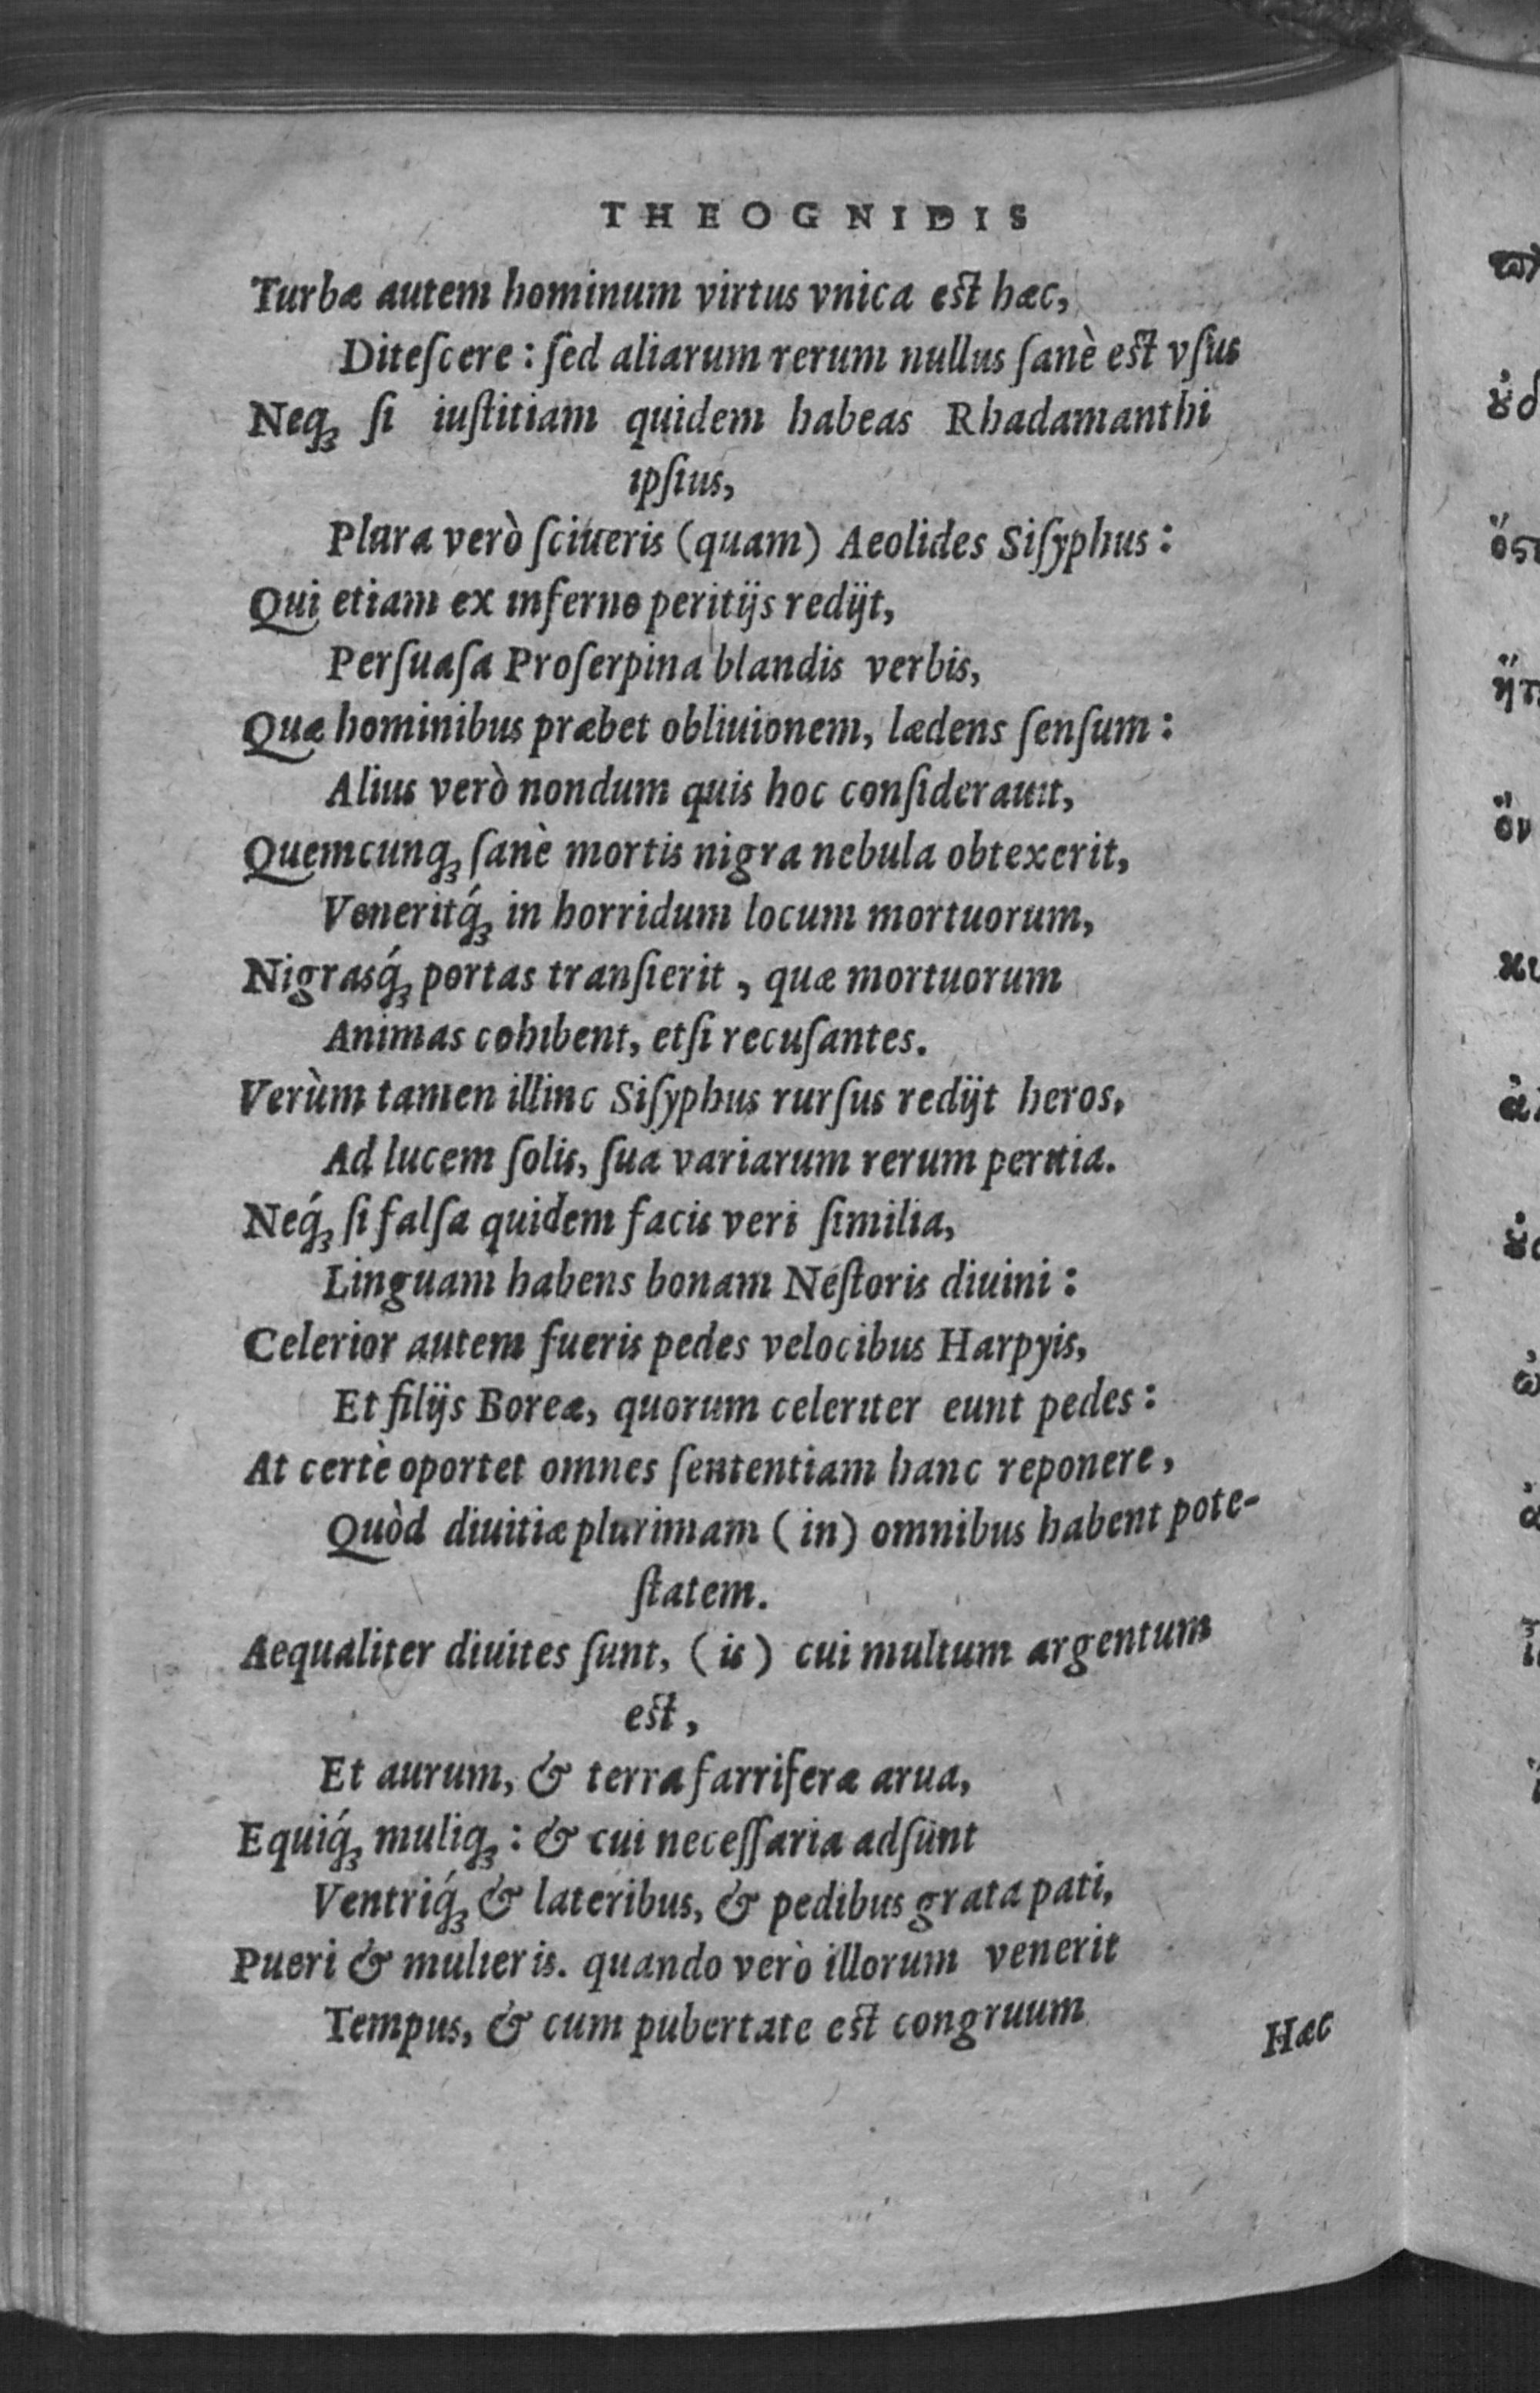 THEOGNIDIS
Turbæ autem hominum virtus vnica est hæc,
Diteſcere : ſed aliarum rerum nullus ſanè est vſus
Neqꝫ ſi iuſtitiam quidem habeas Rhadamanthi
ipſius,
Plura verò ſciueris (quam) Aeolides Siſyphus :
Qui etiam ex inferno peritijs redijt,
Perſuaſa Proſerpina blandis verbis,
Quæ hominibus præbet obliuionem, lædens ſenſum :
Alius verò nondum quis hoc conſiderauit,
Quemcunqꝫ ſanè mortis nigra nebula obtexerit,
Veneritq́ꝫ in horridum locum mortuorum,
Nigrasq́ꝫ portas tranſierit , quæ mortuorum
Animas cohibent, etſi recuſantes.
Verùm tamen illinc Siſyphus rurſus redijt heros,
Ad lucem ſolis, ſua variarum rerum peritia.
Neq́ꝫ ſi falſa quidem facis veri ſimilia,
Linguam habens bonam Neſtoris diuini :
Celerior autem fueris pedes velocibus Harpyis,
Et filijs Boreæ, quorum celeriter eunt pedes :
At certè oportet omnes ſententiam hanc reponere ,
Quòd diuitiæ plurimam ( in) omnibus habent pote-
ſtatem.
Aequaliter diuites ſunt, ( is ) cui multum argentum
est ,
Et aurum, & terra farriferæ arua,
Equiq́ꝫ muliqꝫ : & cui neceſſaria adſunt
Ventriq́ꝫ & lateribus, & pedibus grata pati,
Pueri & mulieris. quando verò illorum venerit
Tempus, & cum pubertate est congruum
Hæc